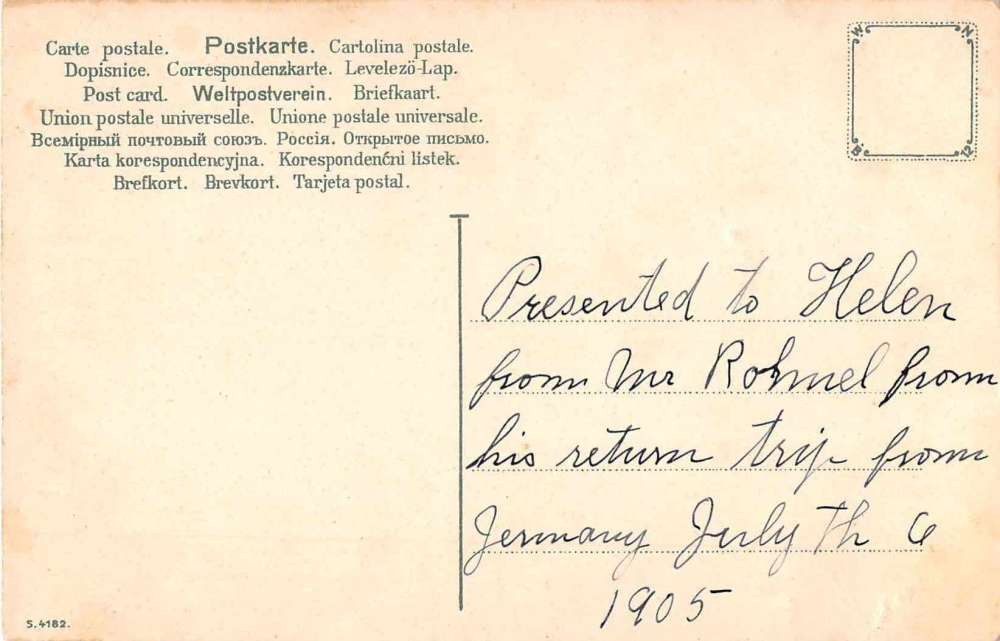 Carte postale. Postkarte. Cartolina postale.
Dopisnice. Correspondenzkarte. Levelező-Lap.
Post card. Weltpostverein. Briefkaart.
Union postale universelle. Unione postale universale.
Всемірный почтовый союзъ. Россія. Открытое письмо.
Karta korespondencyjna. Korespondenčni listek.
Brefkort. Brevkort. Tarjeta postal.
W N
B 12
Presented to Helen
from Mr Rohmel from
his return trip from
Germany July Th 6
1905
S.4182.